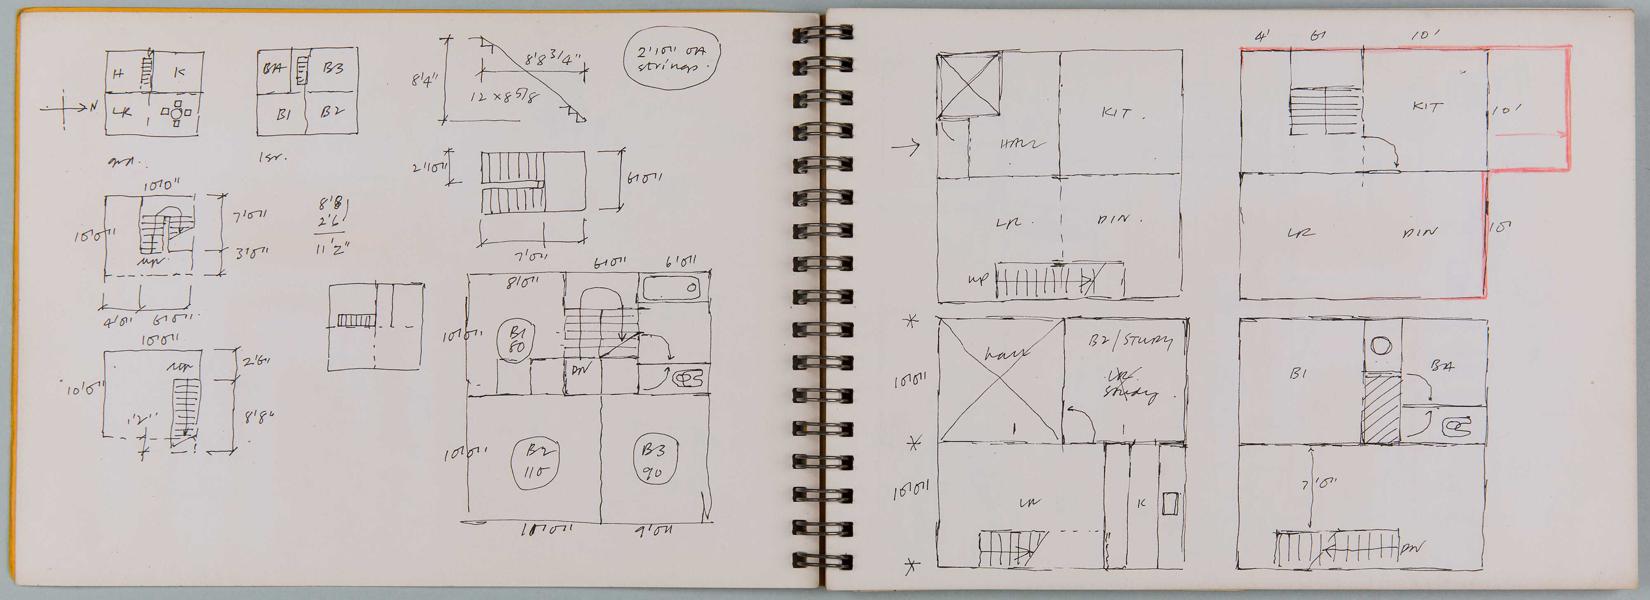 H
K
LR
N
grd.
BA
B3
B1
B2
1st.
8'4"
8'8 3/4"
12 x 8 5/8
2'10" OA
strings.
10'0"
10'0"
up.
7'0"
3'0"
4'0"
6'0"
8'8
2'6
11'2"
2'10"
6'0"
7'0"
10'0"
10'0"
up
2'6"
8'8"
1'2"
8'0"
6'0"
6'0"
10'0"
B1
80
DN
10'0"
B2
110
B3
90
10'0"
9'0"
HALL
KIT.
LR.
DIN.
UP
4'
6'
10'
KIT
10'
LR
DIN
10'
hall
B2/STUDY
LR.
study.
10'0"
10'0"
LR
K
B1
BA
7'0"
DN